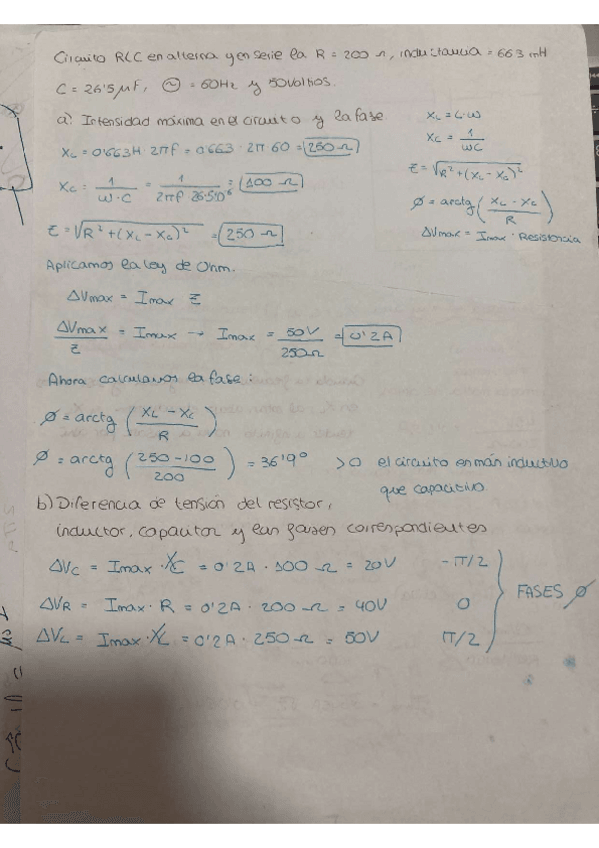 Circuito RLC en alterna y en serie la R = 200 Ω, inductancia = 663 mH
C = 26'5 μF, ~ = 60Hz y 50 voltios.
a) Intensidad máxima en el circuito y la fase.
XL = 0'663H · 2πf = 0'663 · 2π 60 = 250 Ω
Xc = 1/(ω·C) = 1/(2πf 26'5·10⁻⁶) = 100 Ω
Z = √(R² + (XL - Xc)²) = 250 Ω
XL = L·ω
Xc = 1/(ωC)
Z = √(R² + (XL - Xc)²)
Ø = arctg (XL - Xc / R)
ΔVmax = Imax · Resistencia
Aplicamos la ley de Ohm.
ΔVmax = Imax Z
ΔVmax/Z = Imax → Imax = 50V/250Ω = 0'2A
Ahora calculamos la fase:
Ø = arctg (XL - Xc / R)
Ø = arctg (250 - 100 / 200) = 36'9° >0 el circuito es más inductivo
que capacitivo.
b) Diferencia de tensión del resistor,
inductor, capacitor y las fases correspondientes
ΔVc = Imax · Xc = 0'2A · 100 Ω = 20V -π/2
ΔVR = Imax · R = 0'2A · 200 Ω = 40V 0 FASES Ø
ΔVL = Imax · XL = 0'2A · 250 Ω = 50V π/2